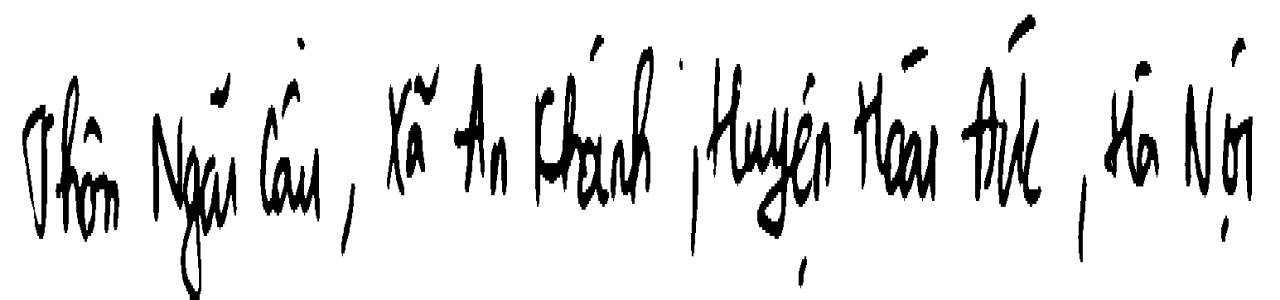 Thôn Ngãi Cầu, Xã An Khánh, Huyện Hoài Đức, Hà Nội